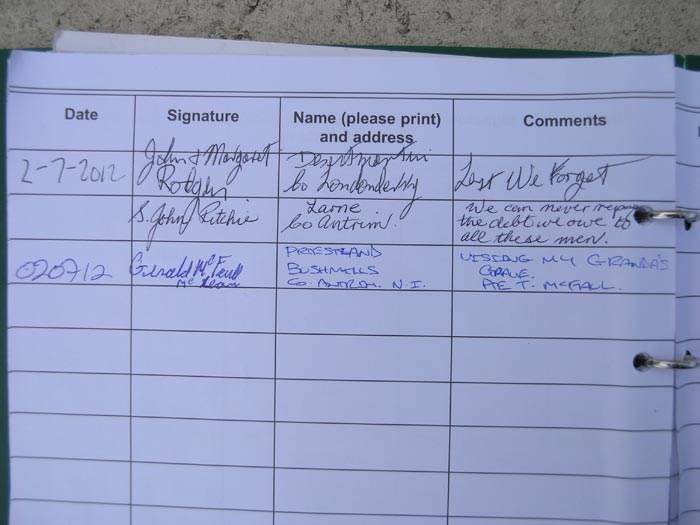 Date Signature Name (please print) and address Comments
2-7-2012 John & Margaret Desertmartin
Rodgers Co Londonderry Lest We Forget
S. John Ritchie Larne We can never repay
Co Antrim. the debt we owe to
all these men.
020712 Gerald PRIESTLAND VISING MY GRANDA'S
BUSHMILLS GRAVE.
CO. ANTRIM. N.I. PTE T. MCFALL.